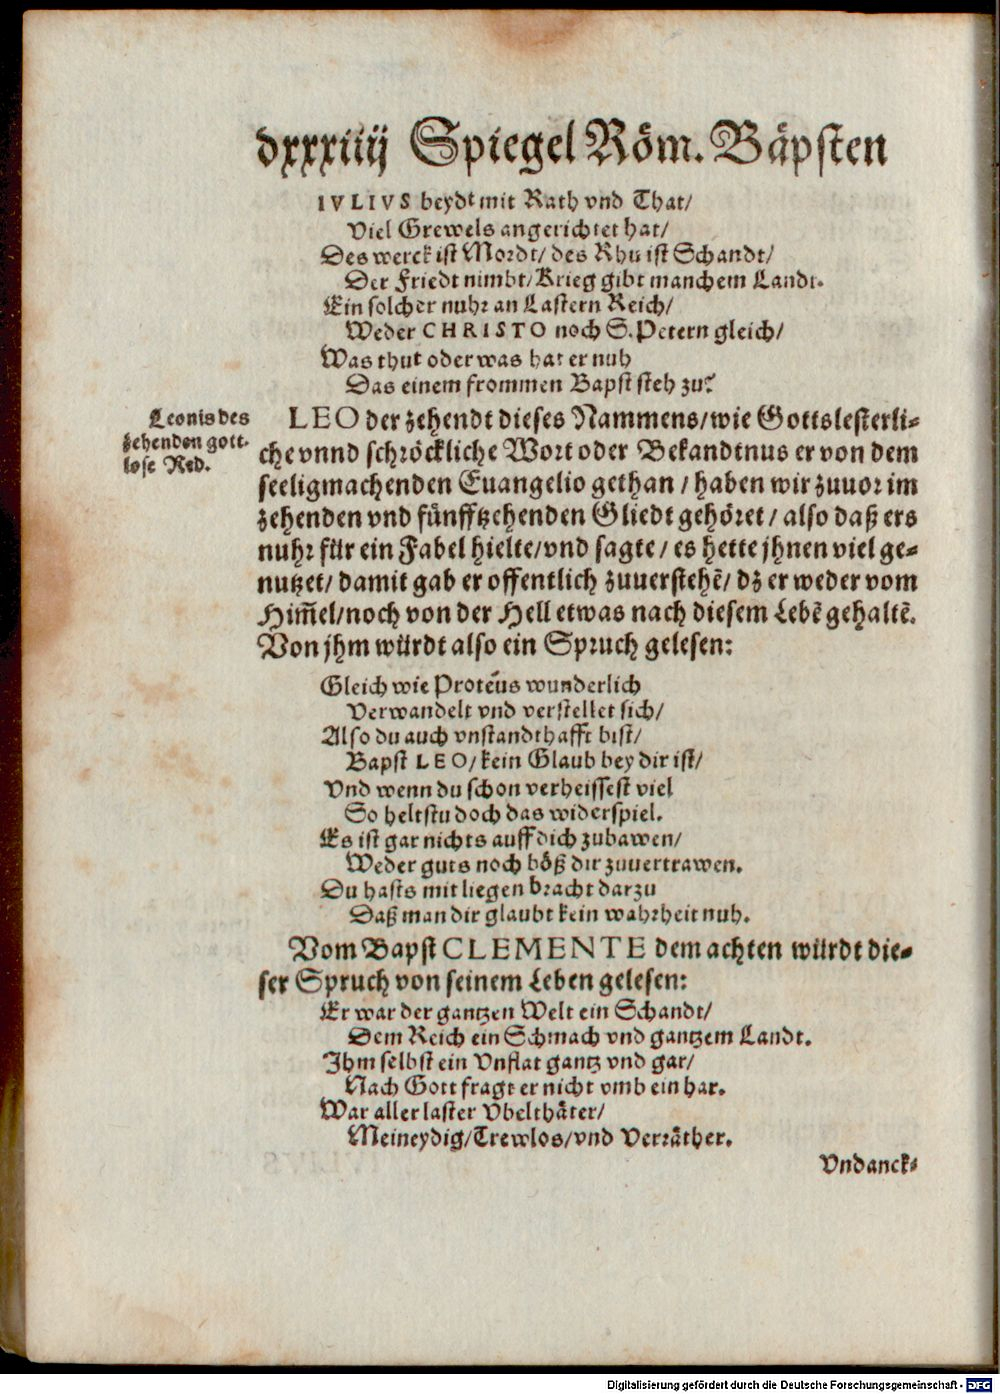 dxxxiiij Spiegel Röm. Bäpsten
IVLIVS beydt mit Rath vnd That/
Viel Grewels angerichtet hat/
Des werck ist Mordt/ des Rhu ist Schandt/
Der Friedt nimbt/ Krieg gibt manchem Landt.
Ein solcher nuhr an Lastern Reich/
Weder CHRISTO noch S. Petern gleich/
Was thut oder was hat er nuh
Das einem frommen Bapst steh zu?
Leonis des
zehenden gott-
lose Red.
LEO der zehendt dieses Nammens/ wie Gottslesterli-
che vnnd schröckliche Wort oder Bekandtnus er von dem
seeligmachenden Euangelio gethan / haben wir zuuor im
zehenden vnd fünfftzehenden Gliedt gehöret / also daß ers
nuhr für ein Fabel hielte/ vnd sagte / es hette jhnen viel ge-
nutzet/ damit gab er offentlich zuuerstehẽ/ dz er weder vom
Him̃el/ noch von der Hell etwas nach diesem Lebẽ gehaltẽ.
Von jhm würdt also ein Spruch gelesen:
Gleich wie Proteus wunderlich
Verwandelt vnd verstellet sich/
Also du auch vnstandthafft bist/
Bapst LEO/ kein Glaub bey dir ist/
Vnd wenn du schon verheissest viel
So heltstu doch das widerspiel.
Es ist gar nichts auff dich zubawen/
Weder guts noch böß dir zuuertrawen.
Du hasts mit liegen bracht darzu
Daß man dir glaubt kein wahrheit nuh.
Vom Bapst CLEMENTE dem achten würdt die-
ser Spruch von seinem Leben gelesen:
Er war der gantzen Welt ein Schandt/
Dem Reich ein Schmach vnd gantzem Landt.
Ihm selbst ein Vnflat gantz vnd gar/
Nach Gott fragt er nicht vmb ein har.
War aller laster Vbelthäter/
Meineydig/ Trewlos/ vnd Verräther.
Vndanck-
Digitalisierung gefördert durch die Deutsche Forschungsgemeinschaft - DFG